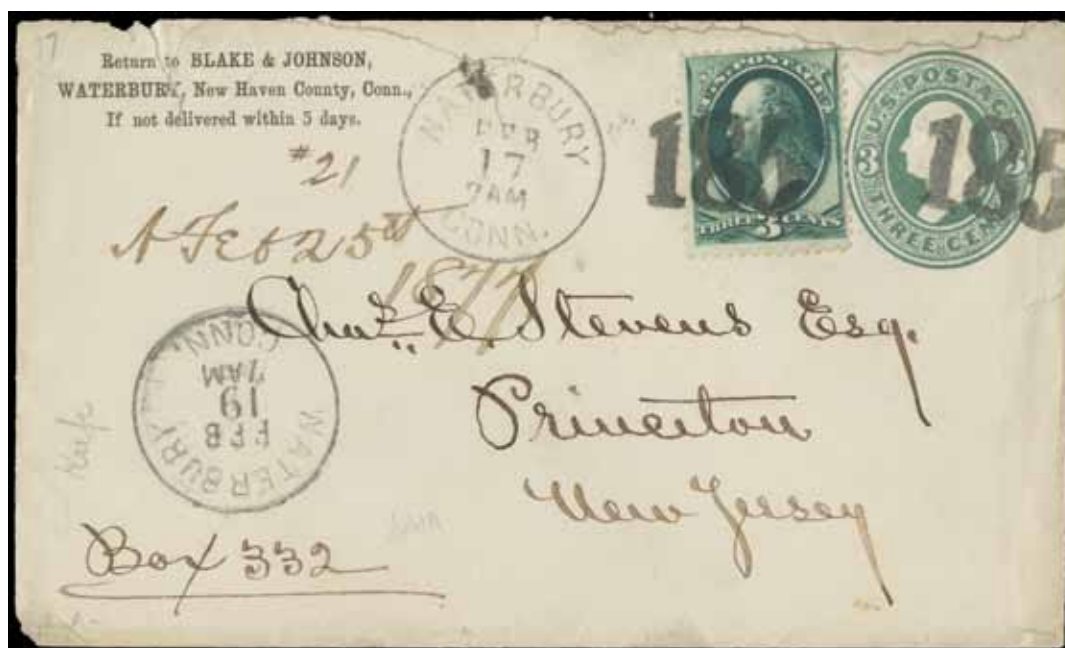 Return to BLAKE & JOHNSON,
WATERBURY, New Haven County, Conn.,
If not delivered within 5 days.
#21
A Feb 25th
1877
WATERBURY
FEB
17
7AM
CONN.
U.S. POSTAGE
THREE 3 CENTS
185
U.S. POSTAGE
3 3
THREE CENTS
185
Chas. E. Stevens Esq.
Princeton
New Jersey
WATERBURY
FEB
19
7AM
CONN.
Box 332
17